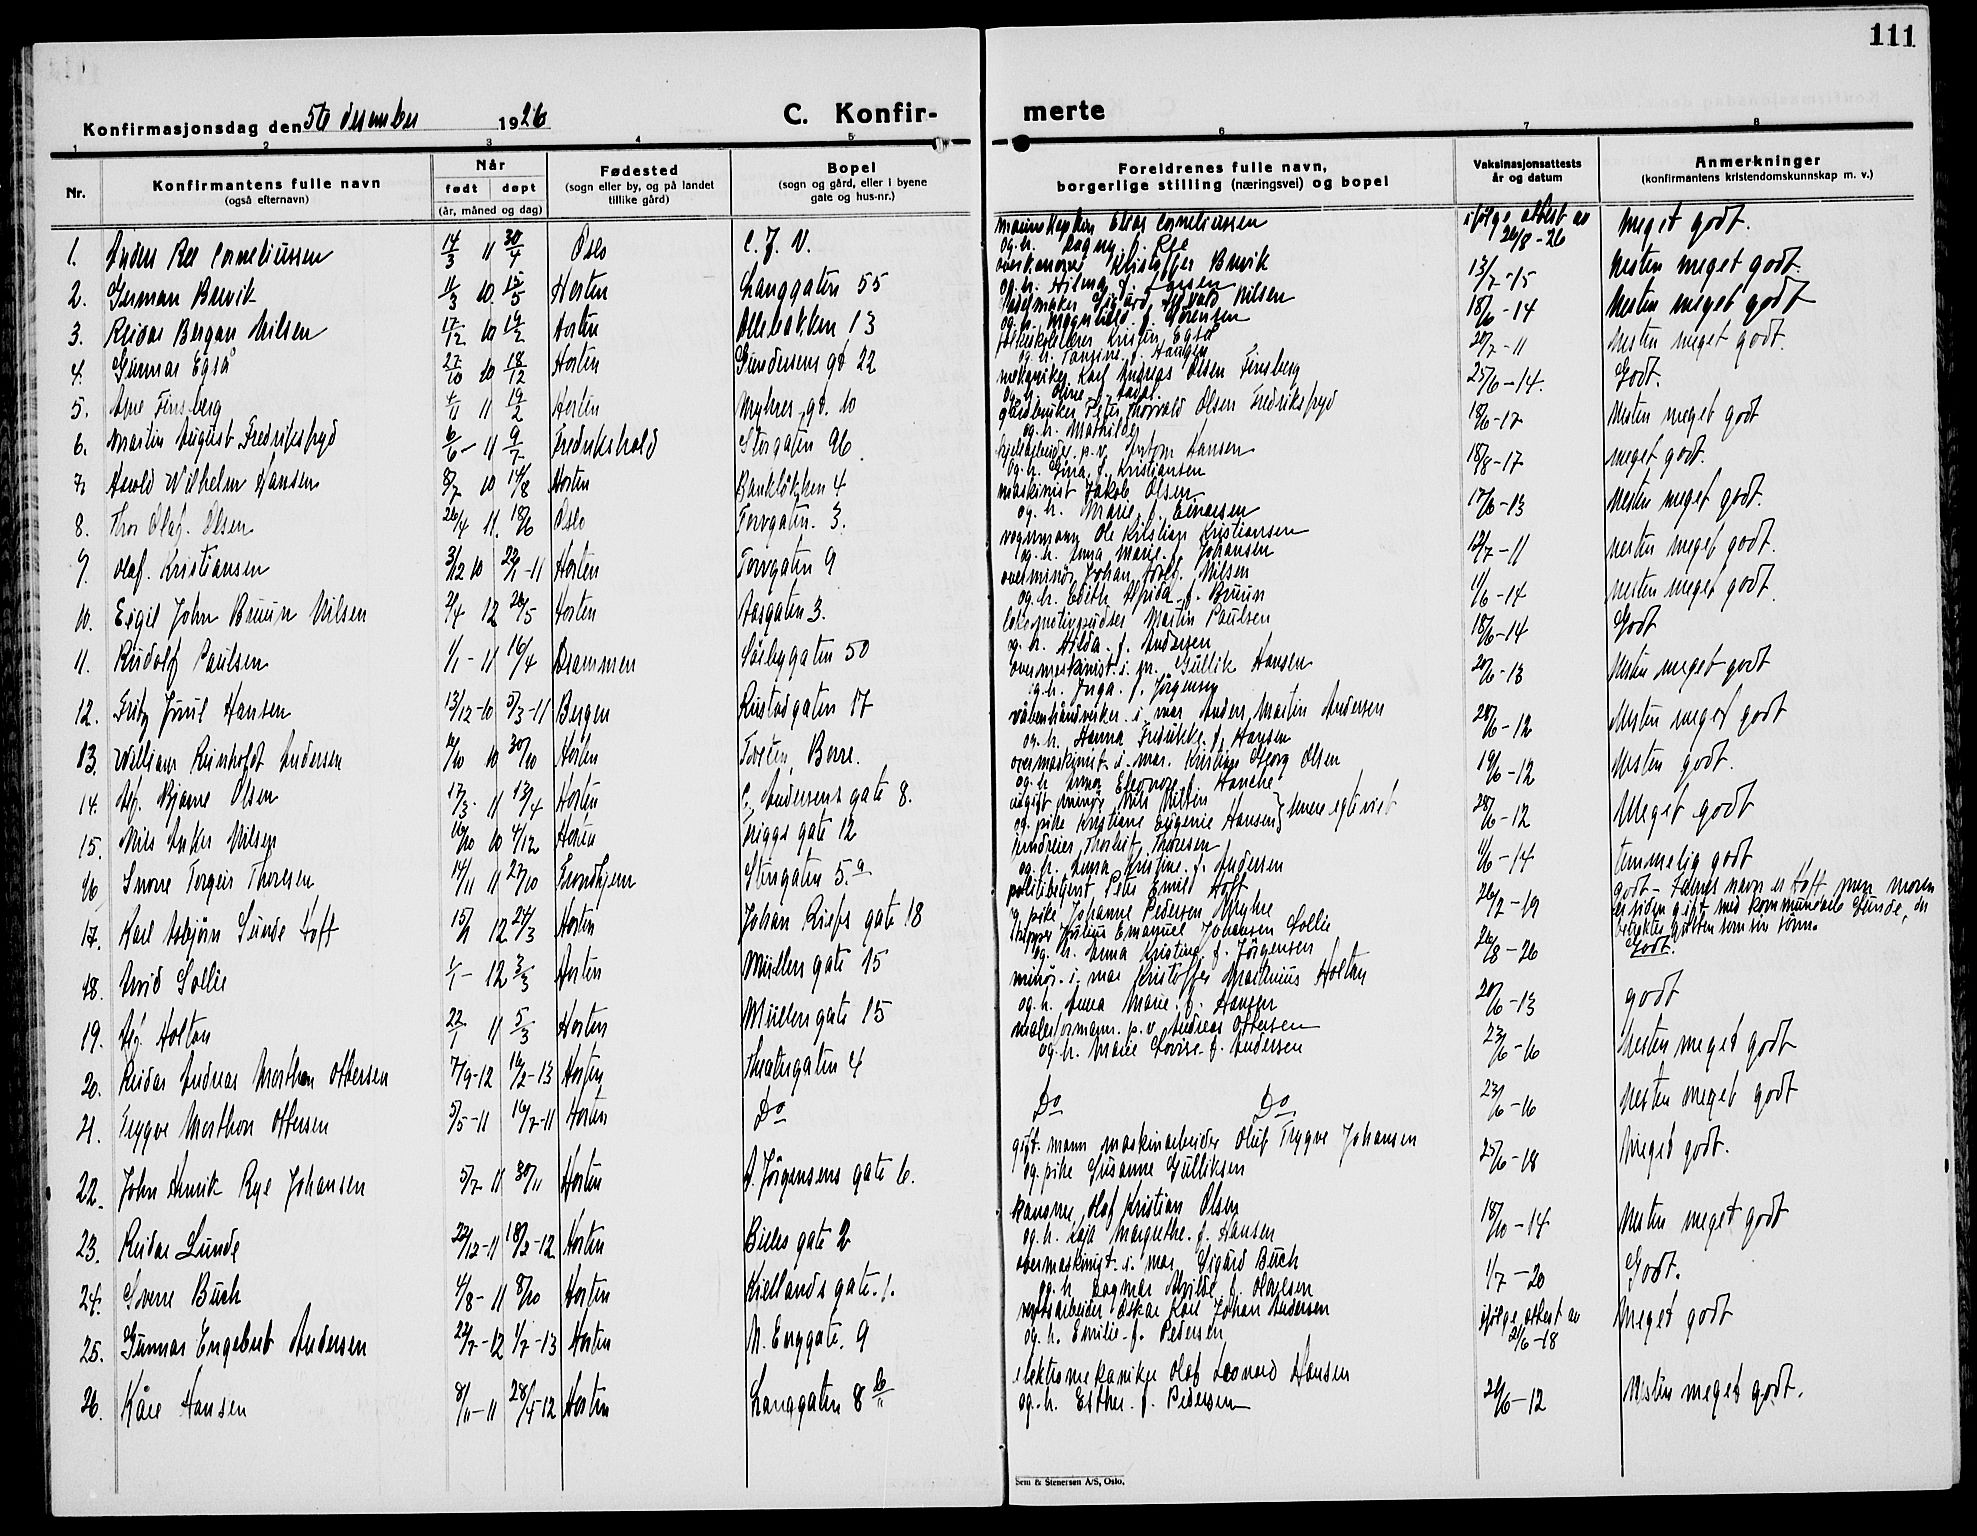 111
Konfirmasjonsdag den 5te desember 1926
C. Konfir- merte
1 2 3 4 5 6 7 8
Nr.
Konfirmantens fulle navn
(også efternavn)
Når
født døpt
(år, måned og dag)
Fødested
(sogn eller by, og på landet
tillike gård)
Bopel
(sogn og gård, eller i byene
gate og hus-nr.)
Foreldrenes fulle navn,
borgerlige stilling (næringsvei) og bopel
Vaksinasjonsattests
år og datum
Anmerkninger
(konfirmantens kristendomskunnskap m. v.)
1. Anders Ree Corneliussen 14/3 11 30/4 Oslo C. J. V. Elias Corneliussen ifølge attest av 26/8-26 Meget godt.
og h. Dagny f. Ree
2. German Buvik 11/3 10 15/5 Horten Langgaten 55 Kristoffer Buvik 13/7-15 Nesten meget godt.
og h. Hilma f. Larsen
3. Reidar Bergan Nilsen 17/12 10 19/2 Horten Ollebakken 13 Sigurd Nilsen 18/6-14 Nesten meget godt
og h. Magnhild f. Sørensen
4. Gunnar Egså 27/10 10 18/12 Horten Gundersens gt 22 Kristin Egså 20/7-11 Nesten meget godt.
og h. f. Haugen
5. Arne Finsberg 4/11 11 19/2 Horten Myhres gt. 10 mekaniker Karl Andreas Olsen Finsberg 25/6-14. Godt.
6. Martin August Fredriksfryd 6/6-11 9/7 Fredrikshald Storgaten 96 Peter Thorvald Olsen Fredriksfryd 18/6-17 Nesten meget godt
og h. Mathilde
7. Harold Wilhelm Hansen 8/7 10 14/8 Horten Bankløkken 4 p.v. Anton Hansen 18/8-17 Meget godt.
og h. Gina f. Kristiansen
8. Thor Olaf. Olsen 26/4 11. 18/6 Oslo Torvgaten. 3. maskinist Jakob Olsen 17/6-13 Nesten meget godt.
og. h. Marie f. Einarsen
9. Olaf. Kristiansen 3/12 10 22/1-11 Horten Torvgaten 9 vognmann Ole Kristian Kristiansen 12/7-11 Nesten meget godt.
og h. Anna Marie f. Johansen
10. Eigil John Bruun Nilsen 2/4 12 26/5 Horten Aasgaten 3. overminør Johan Adolf. Nilsen 11/6-14 Nesten meget godt.
og h. Edith Afrida f. Bruun
11. Rudolf Paulsen 1/1-11 16/4 Drammen Sørbygaten 50 Martin Paulsen 18/6-14 Godt
og h. Hilda. f. Andersen
12. Fritz Juul Hansen 13/12-10 5/3-11 Bergen Rustadgaten 17 overmaskinist. i. m. Gullik Hansen 20/6-13 Nesten meget godt
og h. Inga. f. Jørgensen
13. William Reinholdt Andersen 10 30/10 Horten Tveten, Borre. våbenhåndverker. i. mar Anders Martin Andersen 28/6-12 Nesten meget godt
og. h. Hanna Fredrikke. f. Hansen
14. Asf. Bjarne Olsen 17/3-11 13/4 Horten C. Andersens gate 8. overmaskinist. i. mar. Kristian Georg Olsen 19/6-12 Nesten godt.
og h. Anna Eleonore f. Hanche
15. Nils Anker Nilsen 16/10 10 4/12 Horten Briggs gate 12 ugift minør Nils Nilsen 28/6-12 Meget godt
og pike Kristiane Eugenie Hansen} senere egteviet
16 Snorre Torgeir Thoresen 14/11 11 27/10 Trondhjem Storgaten 5. a Thorleif Thoresen 11/6-14 temmelig godt
og h. Anna Kristine. f. Andersen
17. Karl Asbjørn Sunde Hoft 15/1 12 24/3 Horten Johan Riefs gate 18 politibetjent Peter Emil Hoft 26/7-19 godt - Farens navn er Hoft men moren
og pike Johanne Pedersen Myhre er siden gift med Sunde, der
betrakter gutten som sin sønn.
18. Arvid Sollie 1/1-12 3/3 Horten Müllers gate 15 Julius Emanuel Johansen Sollie 26/8-26 Godt.
og. h. Anna Kristine f. Jørgensen
19. Asf. Holtan 22/1 11 5/3 Horten Müllers gate 15 minør. i. mar Kristoffer Mathinius Holtan 20/6-13 godt
og. h. Anna Marie f. Hansen
20. Reidar Andreas Morthon Ottersen 7/9-12 16/2-13 Horten Theatergaten 4 malerformann. p.v. Andreas Ottersen 23/6-16 Nesten meget godt
og. h. Marie Lovise. f. Andersen
21. Trygve Morthon Ottersen 5/5-11 16/7-11 Horten Do Do Do 23/6-16 Nesten meget godt
22. John Henrik Rye Johansen 5/7-11 30/11 Horten A. Jørgensens gate 6. gift. mann maskinarbeider Oluf Trygve Johansen 25/6-18 Meget godt.
og. pike Susanne Gulliksen
23. Reidar Lunde 22/12-11 18/2-12 Horten Billes gate 2 kanoner Olaf Kristian Olsen 18/10-14 Nesten meget godt
og. h. Kaja Margrethe. f. Hansen
24. Sverre Buch 4/8-11 8/10 Horten Kiellands gate. 1. overmaskinist. i. mar Sigurd Buch 1/7-20 Godt.
og. h Dagmar f. Olavesen
25. Gunnar Engebret Andersen 22/7-12 1/7-13 Horten N. Enggate. 9 verftsarbeider Oskar Karl Johan Andersen ifølge attest av 21/6-18 Meget godt
og. h. Emilie. f. Pedersen
26. Kåre Hansen 8/11-11 28/4-12 Horten Langgaten 8 b elektromekaniker Olaf Leonard Hansen 20/6-12 Nesten meget godt.
og. h. Esther. f. Pedersen
Sem & Stenersen A/S, Oslo.